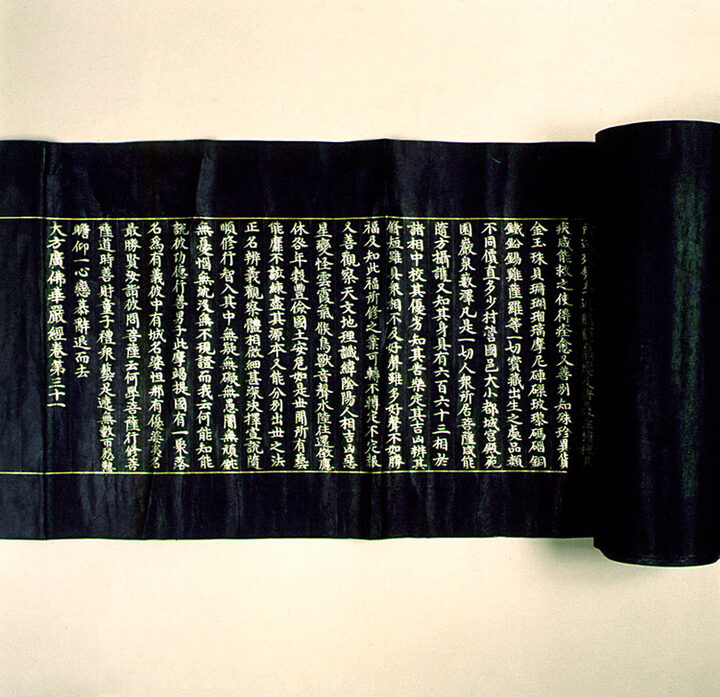 疾咸能救之使得痊愈又善別知殊珍異貨
金玉珠貝珊瑚瑠璃摩尼硨磲玻瓈碼碯銅
鐵鈆錫雞薩羅等一切寶藏出生之處品類
不同價直多少村營國邑大小都城宮殿苑
園巖泉藪澤凡是一切人衆所居菩薩咸能
隨方攝護又知其身具有六百六十三相於
諸相中校其優劣知其苦樂定其吉凶辨其
修短雖具衆相不及好聲雖多好聲不如勝
福及知此福所修之業可轉不轉定不定報
又善觀察天文地理讖緯陰陽人相吉凶惡
星變怪雲霞氣候鳥獸音聲水陸往還徵應
休咎年穀豐儉國土安危如是世間所有藝
能靡不該練盡其源本又能分別出世之法
正名辨義觀察體相微細甚深決擇宣說隨
順修行智入其中無疑無礙無愚闇無頑鈍
無憂惱無沈沒無不現證而我云何能知能
說彼功德行善男子此摩竭提國有一聚落
名為有義彼中有城名婆怛那有優婆夷名
最勝賢汝詣彼問菩薩云何學菩薩行修菩
薩道時善財童子禮衆藝足遶無數匝慇懃
瞻仰一心戀慕辭退而去
大方廣佛華嚴經卷第三十一